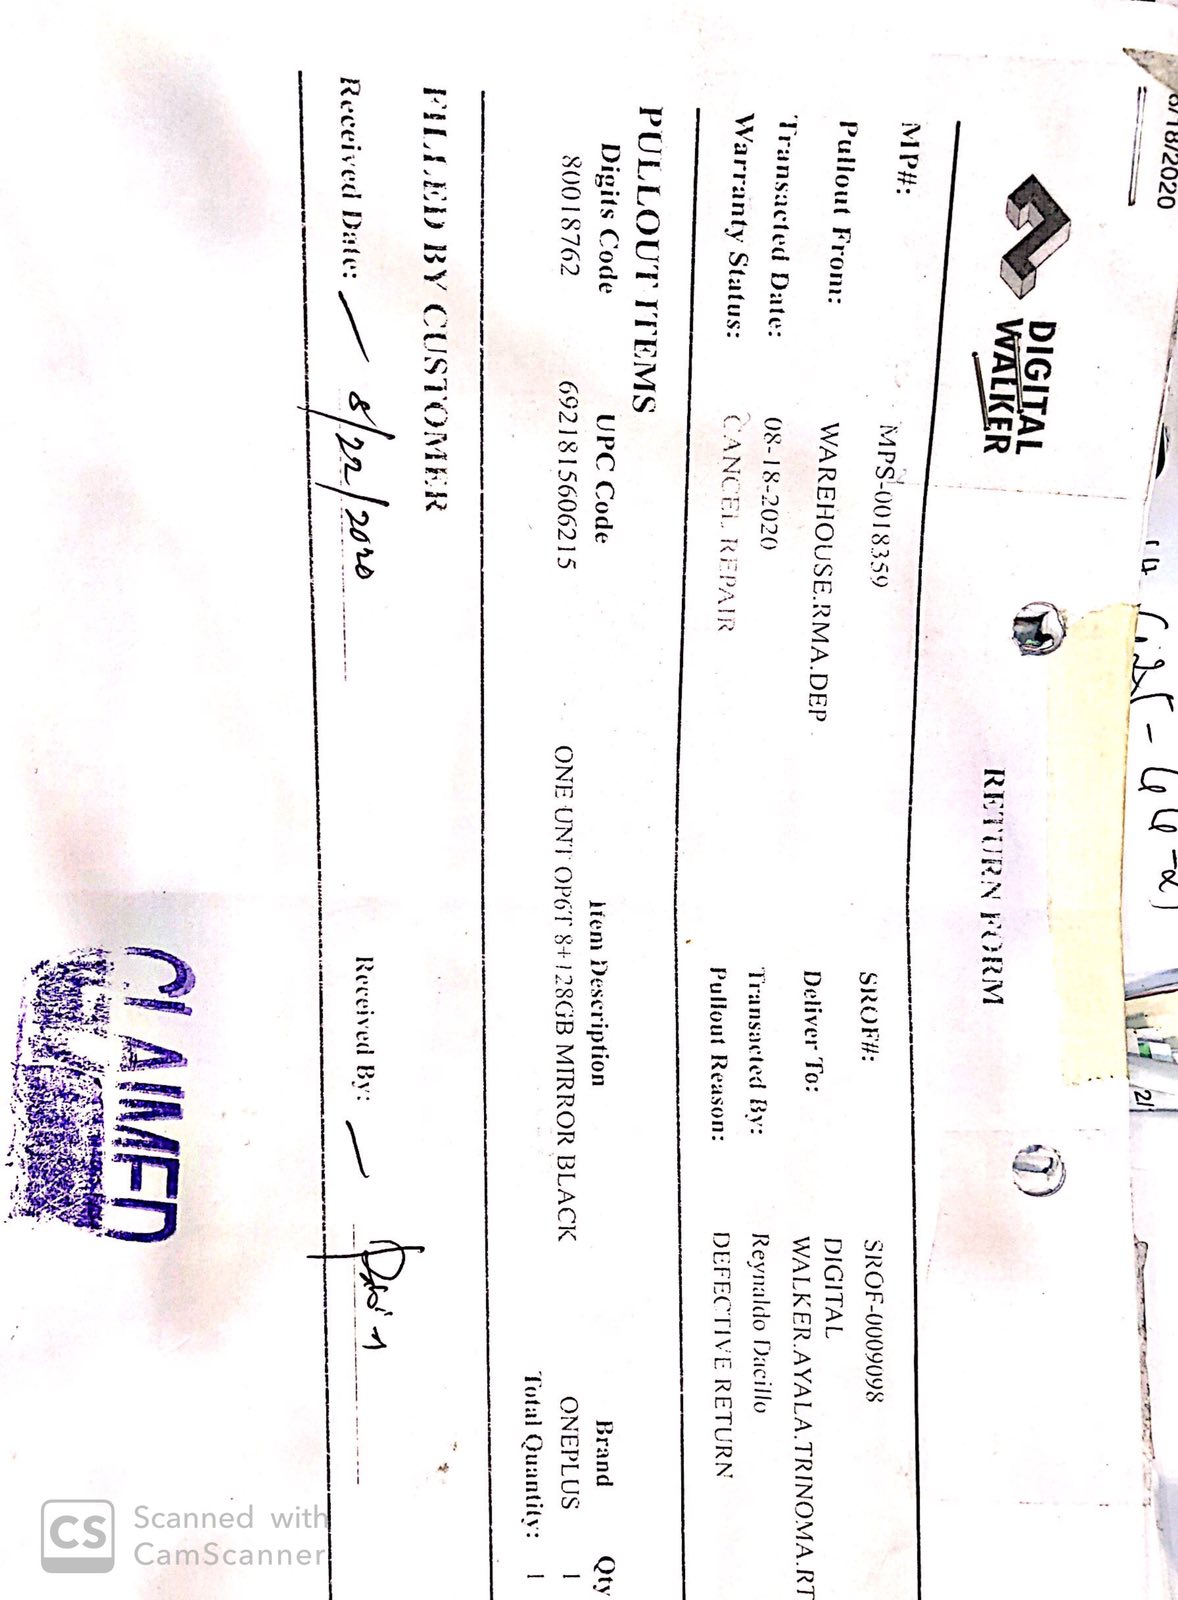 6/18/2020
DIGITAL
WALKER
RETURN FORM
MP#: MPS-0018359 SROF#: SROF-0009098
Pullout From: WAREHOUSE.RMA.DEP Deliver To: DIGITAL
WALKER.AYALA.TRINOMA.RT
Transacted Date: 08-18-2020 Transacted By: Reynaldo Dacillo
Warranty Status: CANCEL REPAIR Pullout Reason: DEFECTIVE RETURN
PULLOUT ITEMS
Digits Code UPC Code Item Description Brand Qty
80018762 6921815606215 ONE UNT OP6T 8+128GB MIRROR BLACK ONEPLUS 1
Total Quantity: 1
FILLED BY CUSTOMER
Received Date: 8/22/2020 Received By:
CLAIMED
CS Scanned with
CamScanner